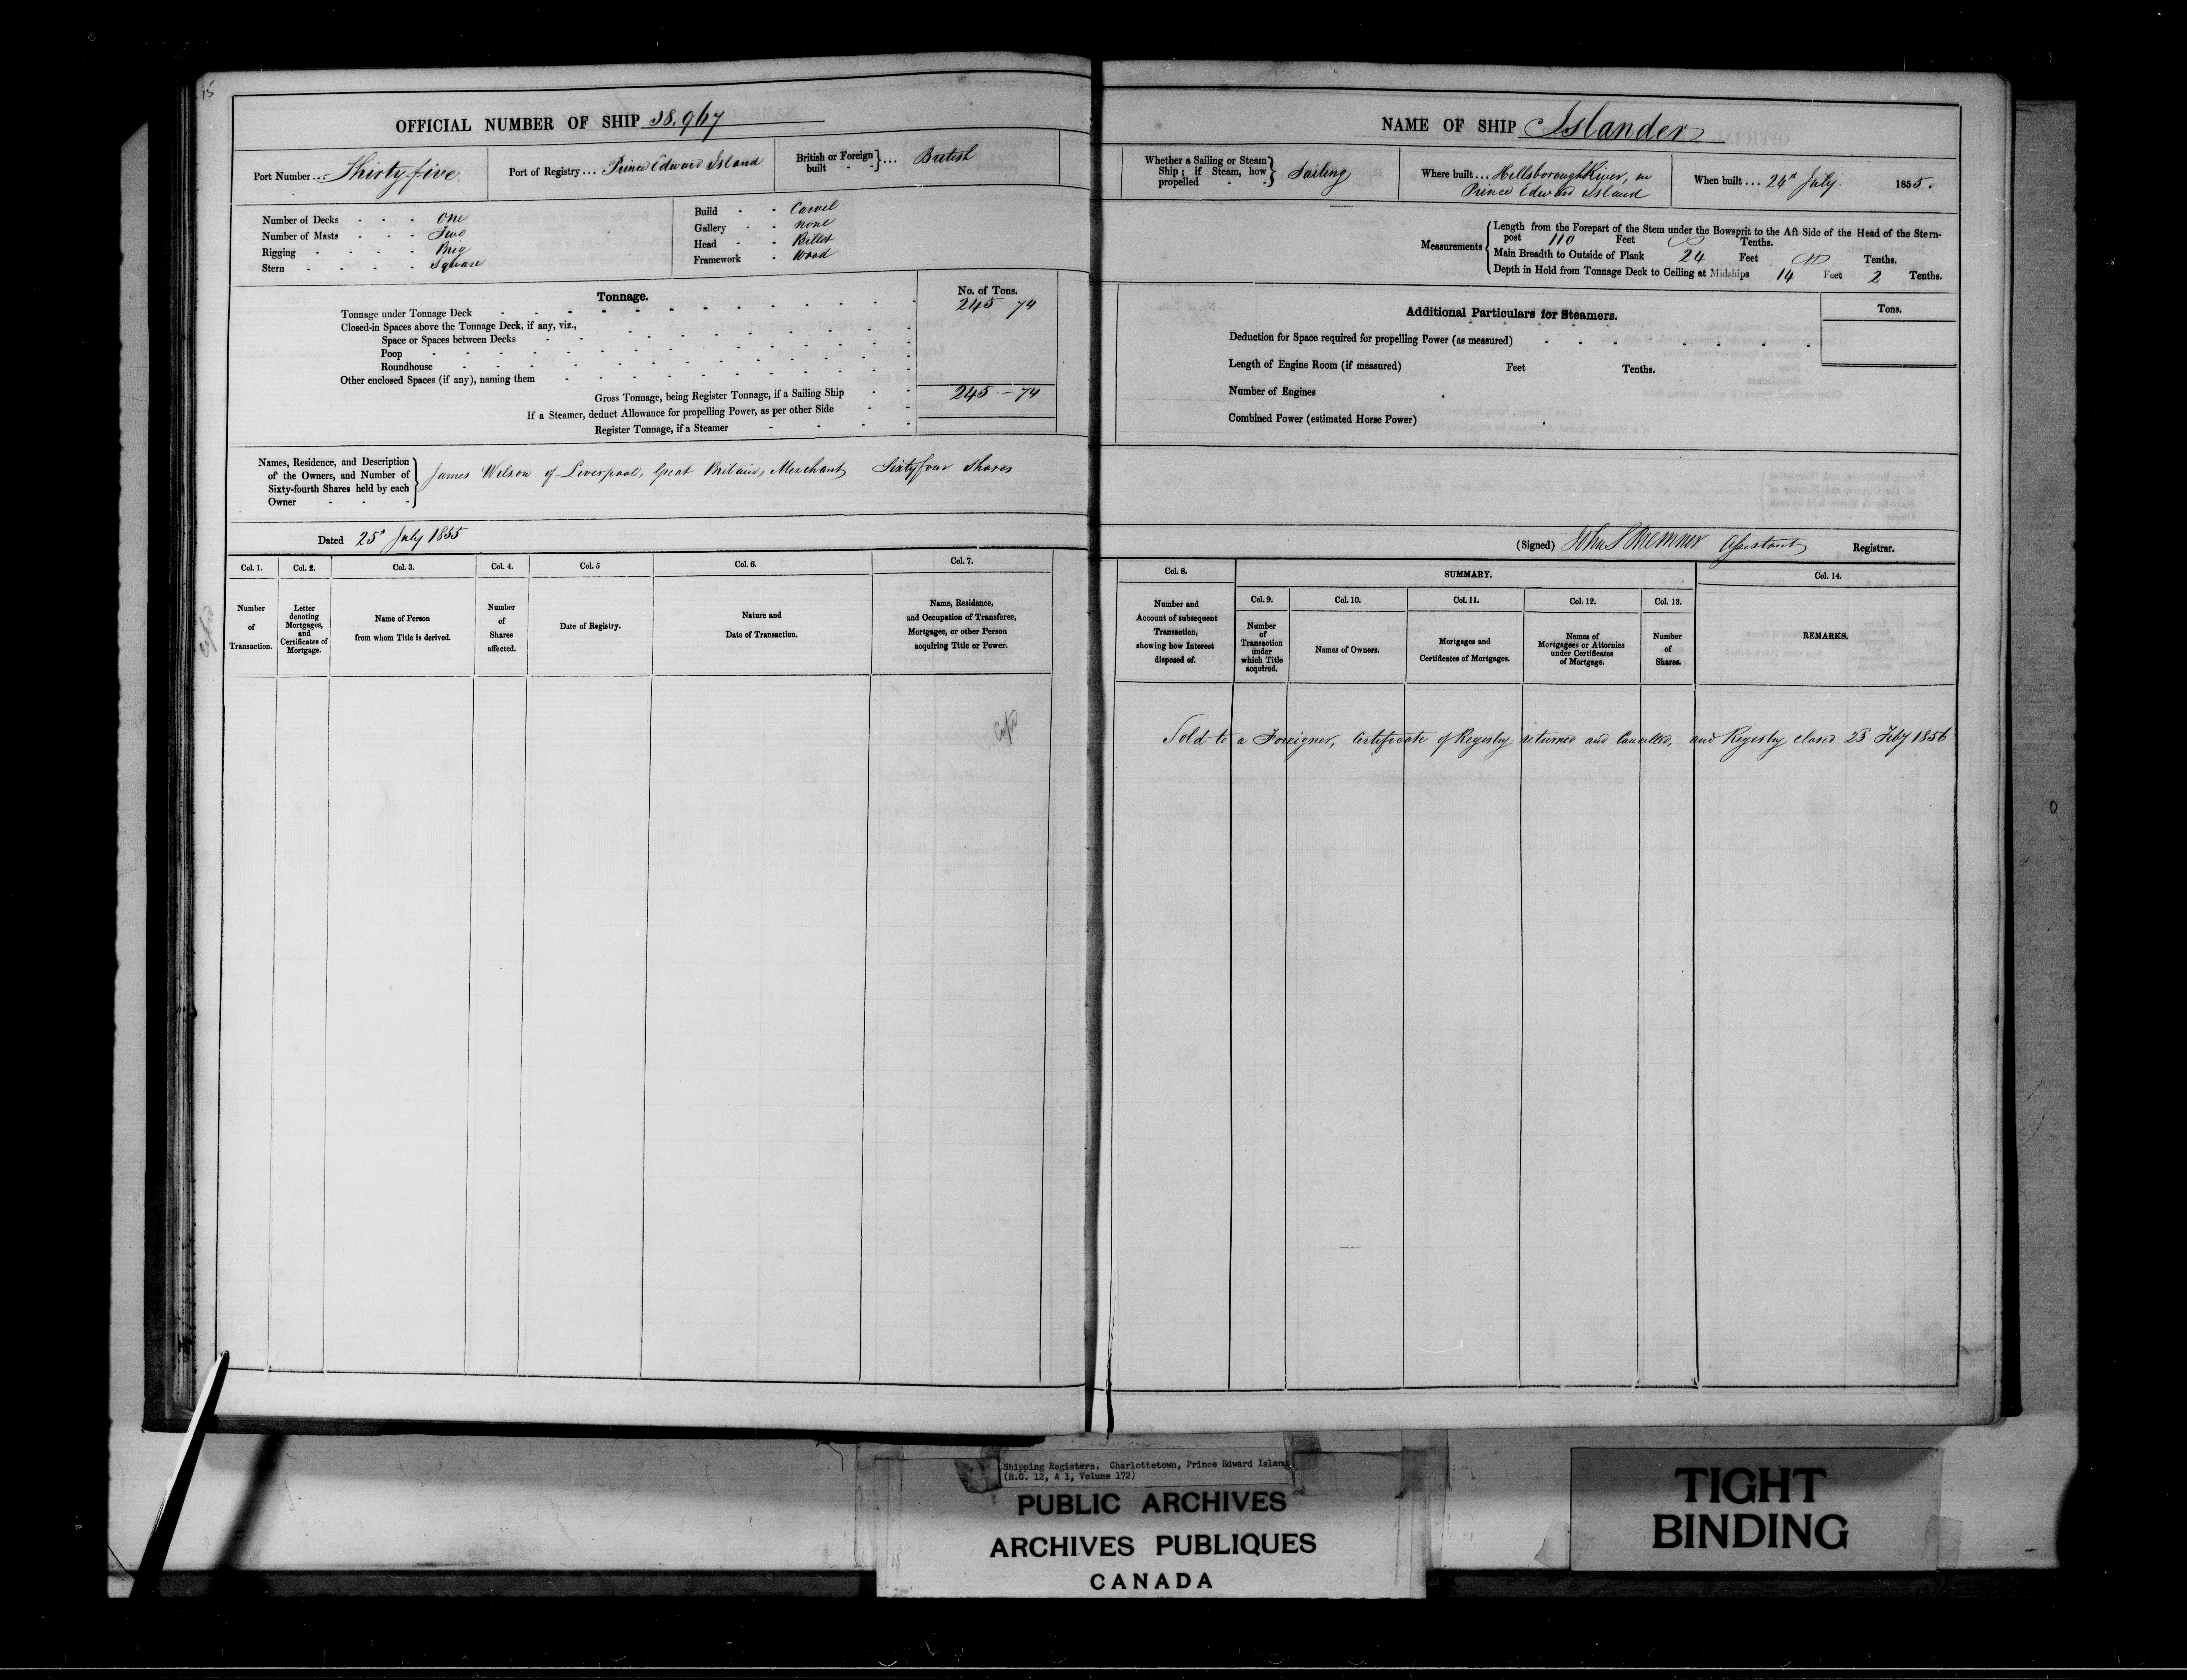 15
OFFICIAL NUMBER OF SHIP 38.967
Port Number... Thirty five.
Port of Registry... Prince Edward Island
British or Foreign built } ... British
Number of Decks - - - One
Number of Masts - - - Two
Rigging - - - - Brig
Stern - - - - Square
Build - - Carvel
Gallery - - none
Head - - Billet
Framework - Wood
Tonnage.
No. of Tons.
Tonnage under Tonnage Deck 245 74
Closed-in Spaces above the Tonnage Deck, if any, viz.,
Space or Spaces between Decks
Poop
Roundhouse
Other enclosed Spaces (if any), naming them
Gross Tonnage, being Register Tonnage, if a Sailing Ship 245 — 74
If a Steamer, deduct Allowance for propelling Power, as per other Side
Register Tonnage, if a Steamer
Names, Residence, and Description of the Owners, and Number of Sixty-fourth Shares held by each Owner } James Wilson of Liverpool, Great Britain, Merchant Sixty four Shares
Dated 25" July 1855
Col. 1. Col. 2. Col. 3. Col. 4. Col. 5 Col. 6. Col. 7.
Number of Transaction.
Letter denoting Mortgages, and Certificates of Mortgage.
Name of Person from whom Title is derived.
Number of Shares affected.
Date of Registry.
Nature and Date of Transaction.
Name, Residence, and Occupation of Transferee, Mortgagee, or other Person acquiring Title or Power.
NAME OF SHIP Islander
Whether a Sailing or Steam Ship; if Steam, how propelled } Sailing
Where built... Hillsborough River, in Prince Edward Island
When built... 24" July. 1855.
Measurements
Length from the Forepart of the Stem under the Bowsprit to the Aft Side of the Head of the Stern-
post 110 Feet Tenths.
Main Breadth to Outside of Plank 24 Feet Tenths.
Depth in Hold from Tonnage Deck to Ceiling at Midships 14 Feet 2 Tenths.
Additional Particulars for Steamers.
Tons.
Deduction for Space required for propelling Power (as measured)
Length of Engine Room (if measured) Feet Tenths.
Number of Engines
Combined Power (estimated Horse Power)
(Signed) John S Bremner Assistant Registrar.
Col. 8. SUMMARY. Col. 14.
Col. 9. Col. 10. Col. 11. Col. 12. Col. 13.
Number and Account of subsequent Transaction, showing how Interest disposed of.
Number of Transaction under which Title acquired.
Names of Owners.
Mortgages and Certificates of Mortgages.
Names of Mortgagees or Attornies under Certificates of Mortgage.
Number of Shares.
REMARKS.
Sold to a Foreigner, Certificate of Registry returned and Cancelled, and Registry closed 23 Feby 1856
Shipping Registers. Charlottetown, Prince Edward Island
(R.G. 12, A 1, Volume 172)
PUBLIC ARCHIVES
ARCHIVES PUBLIQUES
CANADA
TIGHT
BINDING